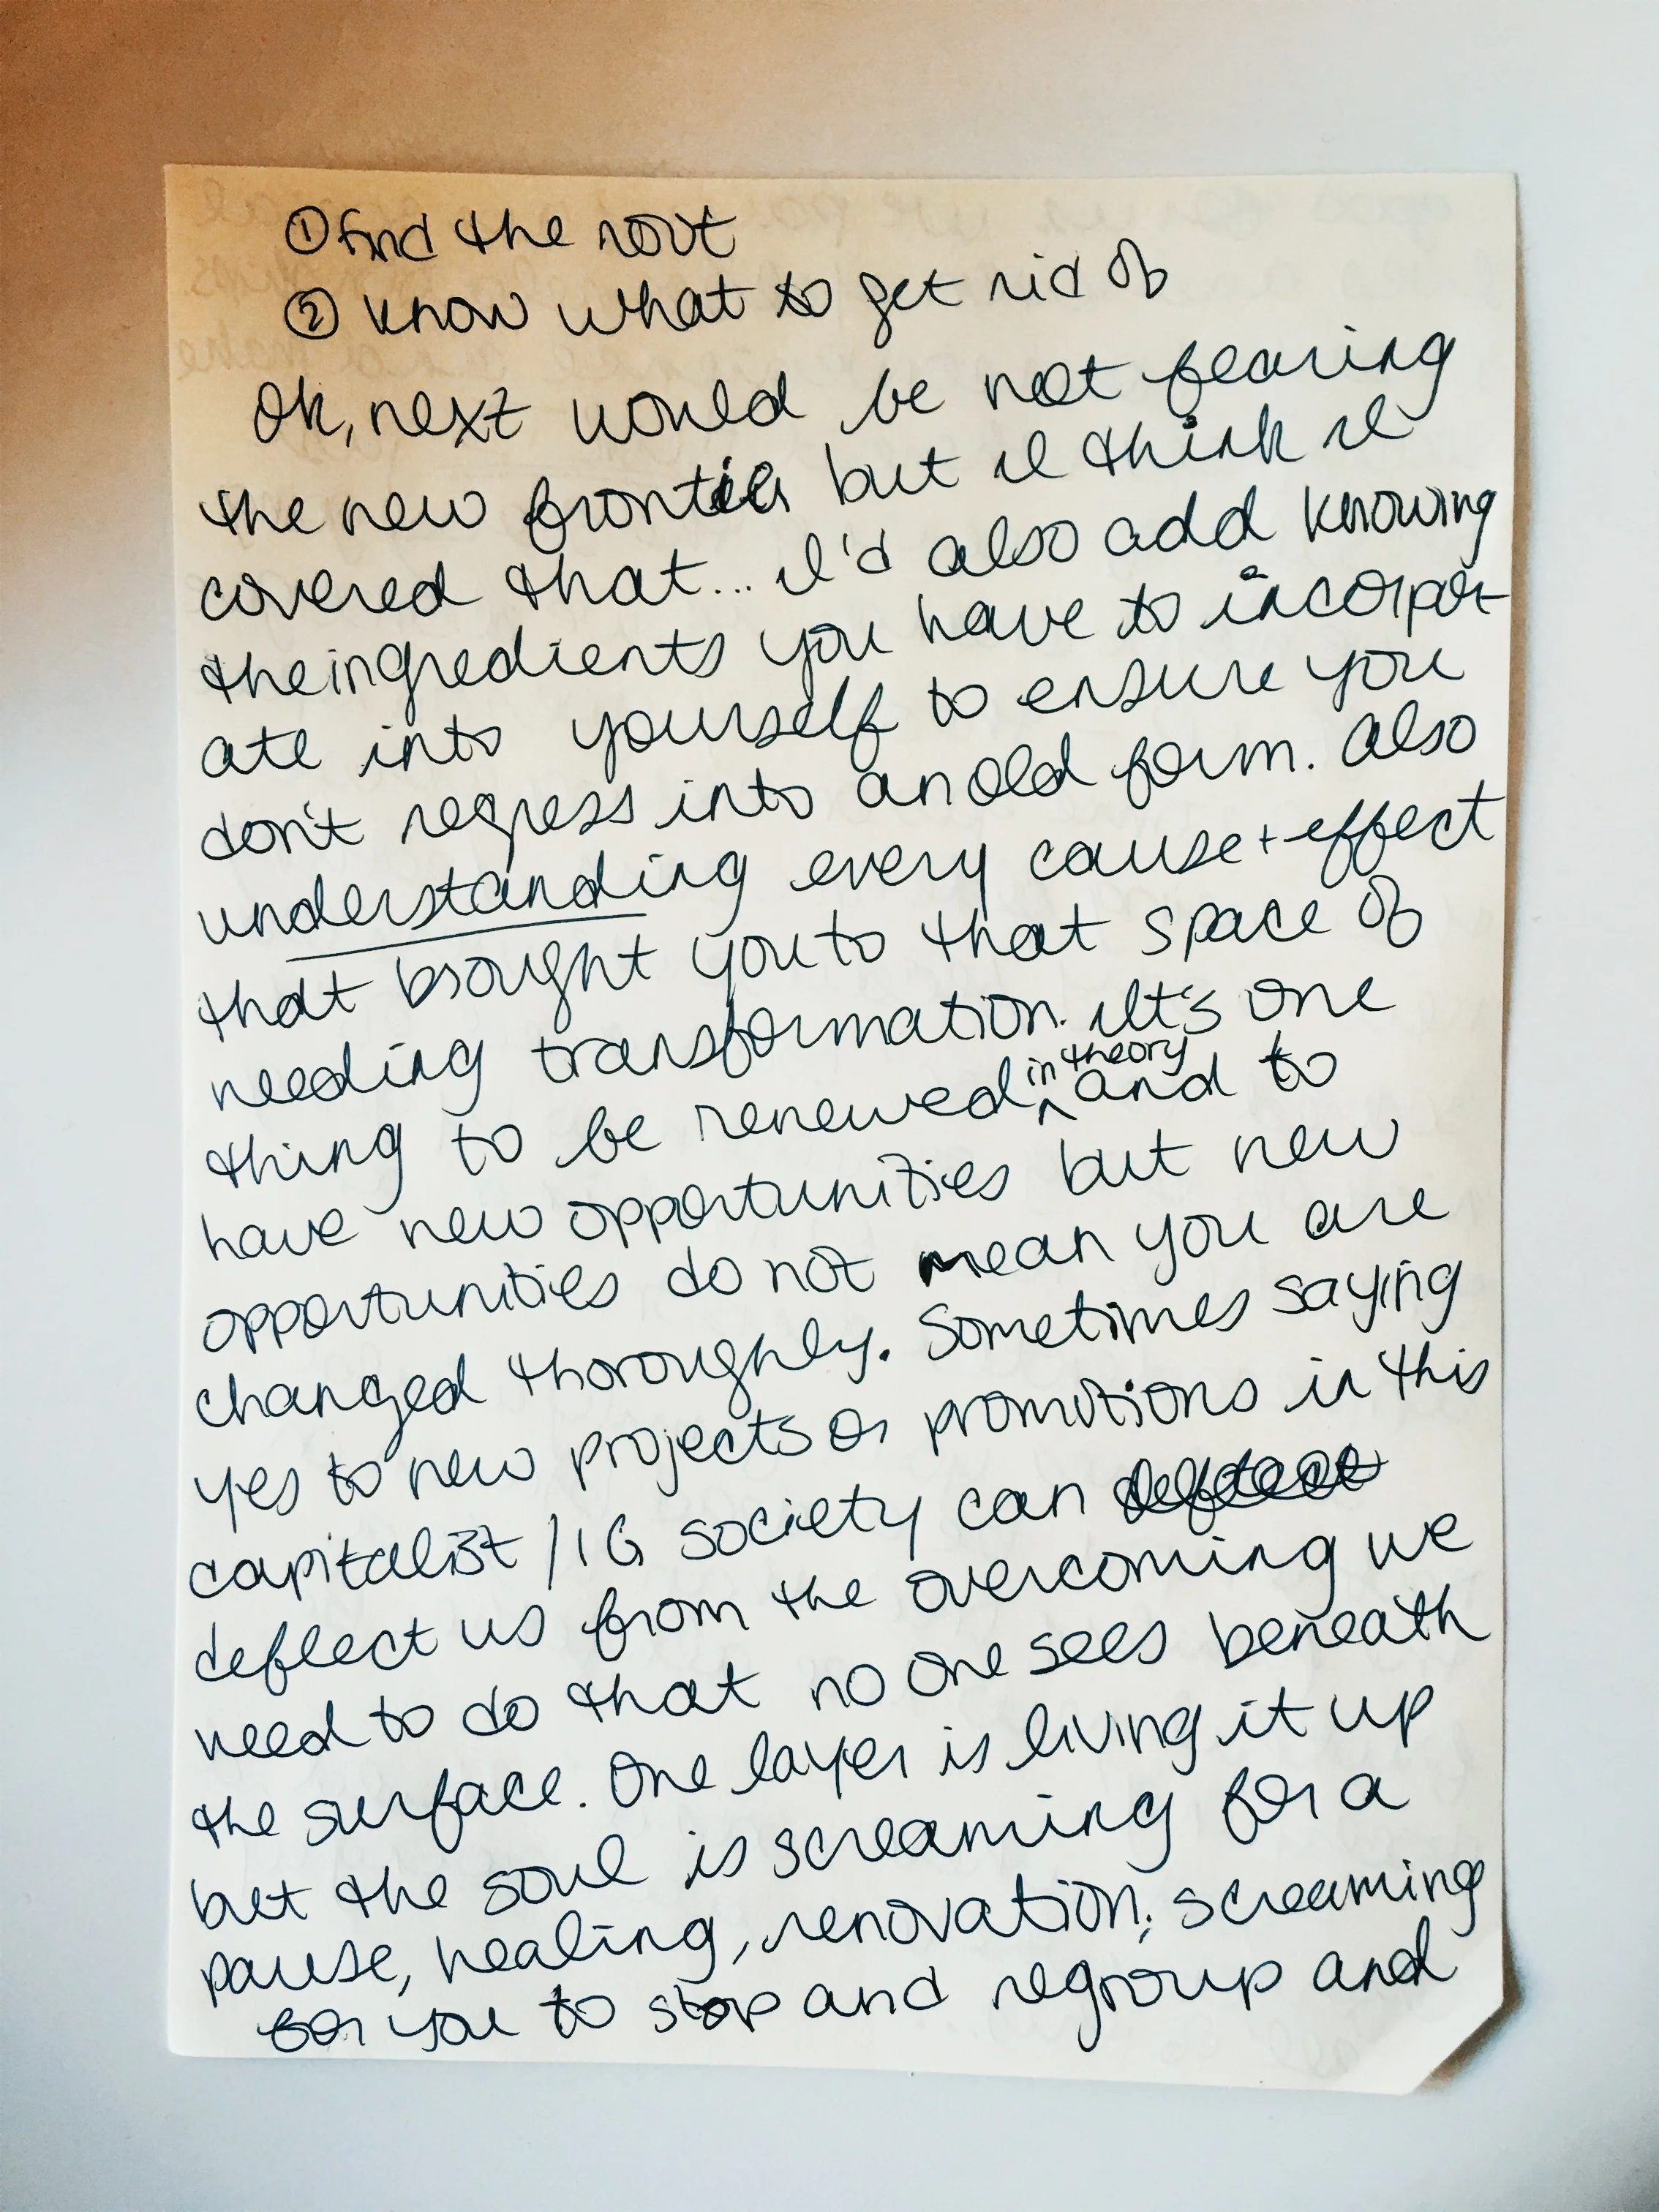 ① find the root
② know what to get rid of
Ok, next would be not fearing
the new frontier but I think I
covered that... I'd also add knowing
the ingredients you have to incorpor-
ate into yourself to ensure you
don't regress into an old form. Also
understanding every cause + effect
that brought you to that space of
needing transformation. It's one
thing to be renewed in theory and to
have new opportunities but new
opportunities do not mean you are
changed thoroughly. Sometimes saying
yes to new projects or promotions in this
capitalist / IG society can
deflect us from the overcoming we
need to do that no one sees beneath
the surface. One layer is living it up
but the soul is screaming for a
pause, healing, renovation; screaming
for you to stop and regroup and